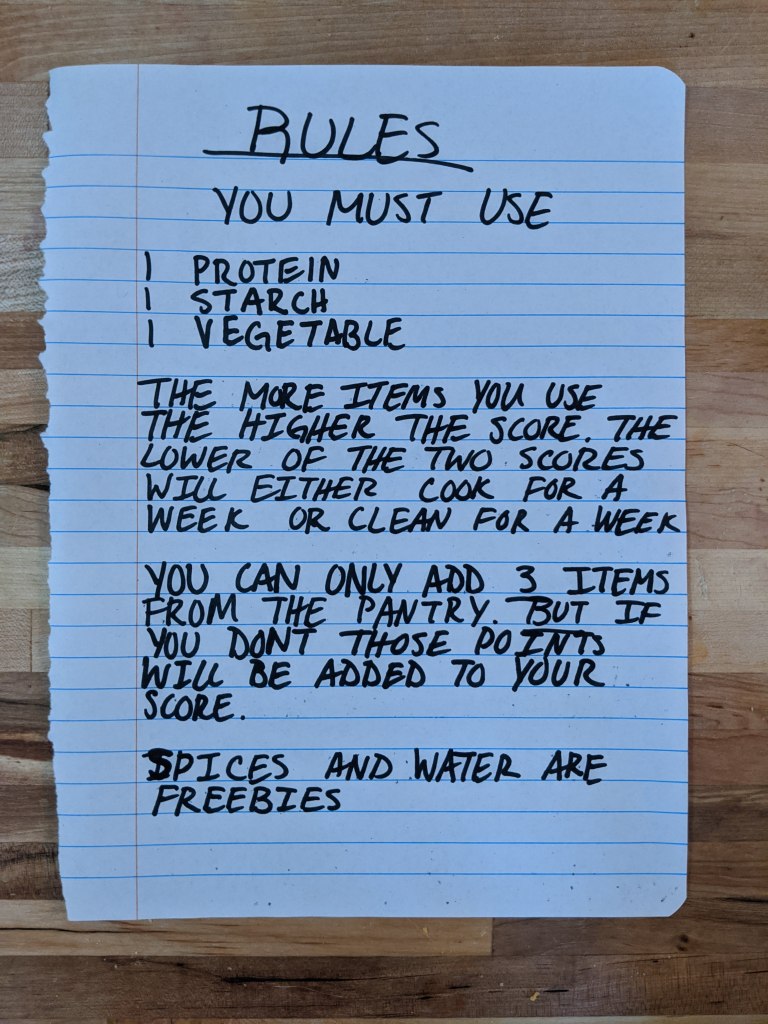 RULES
YOU MUST USE
1 PROTEIN
1 STARCH
1 VEGETABLE
THE MORE ITEMS YOU USE
THE HIGHER THE SCORE. THE
LOWER OF THE TWO SCORES
WILL EITHER COOK FOR A
WEEK OR CLEAN FOR A WEEK
YOU CAN ONLY ADD 3 ITEMS
FROM THE PANTRY. BUT IF
YOU DONT THOSE POINTS
WILL BE ADDED TO YOUR
SCORE.
SPICES AND WATER ARE
FREEBIES